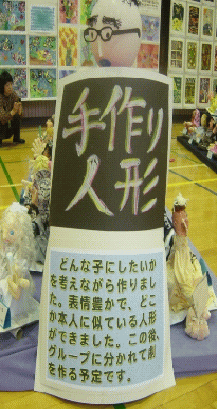 手作り
人形
どんな子にしたいか
を考えながら作りまし
た。表情豊かで、どこ
か本人に似ている人形
ができました。この後、
グループに分かれて劇
を作る予定です。